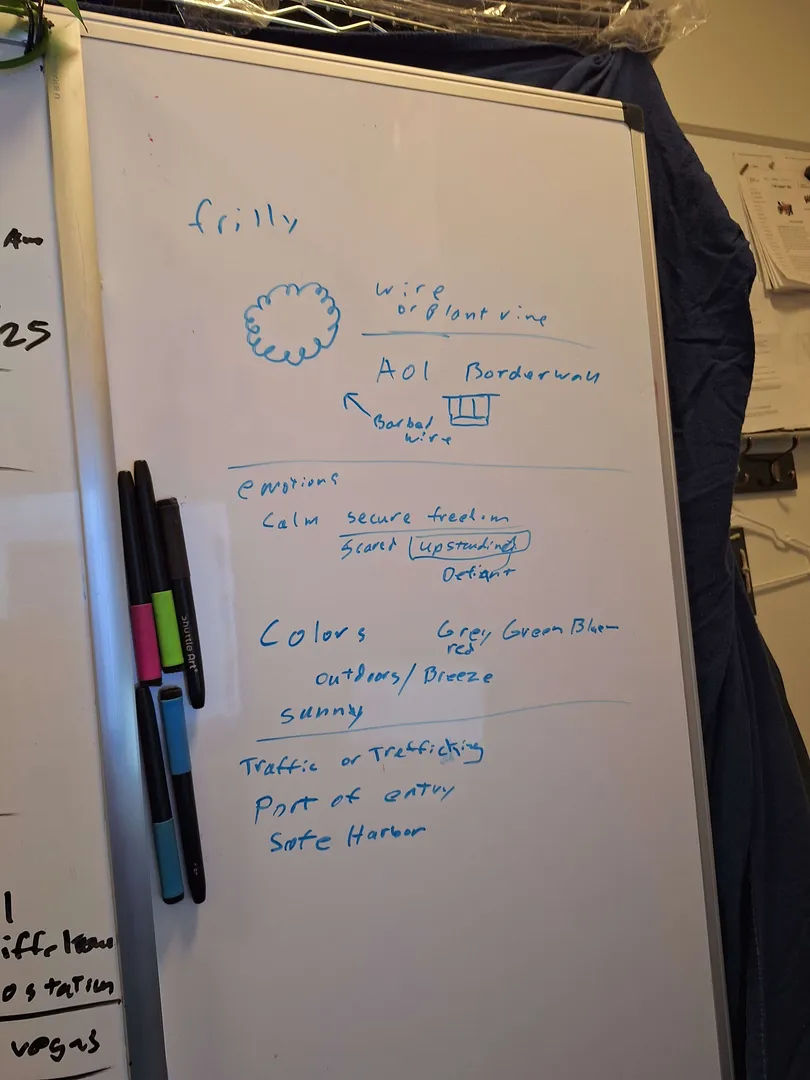 frilly
wire
or Plant vine
AOl Borderwall
Barbed
wire
emotions
Calm secure freedom
Scared upstanding
Defiant
Colors Grey Green Blue
red
outdoors/Breeze
sunny
Traffic or Trafficking
Port of entry
Safe Harbor
Shuttle Art
25
vegas